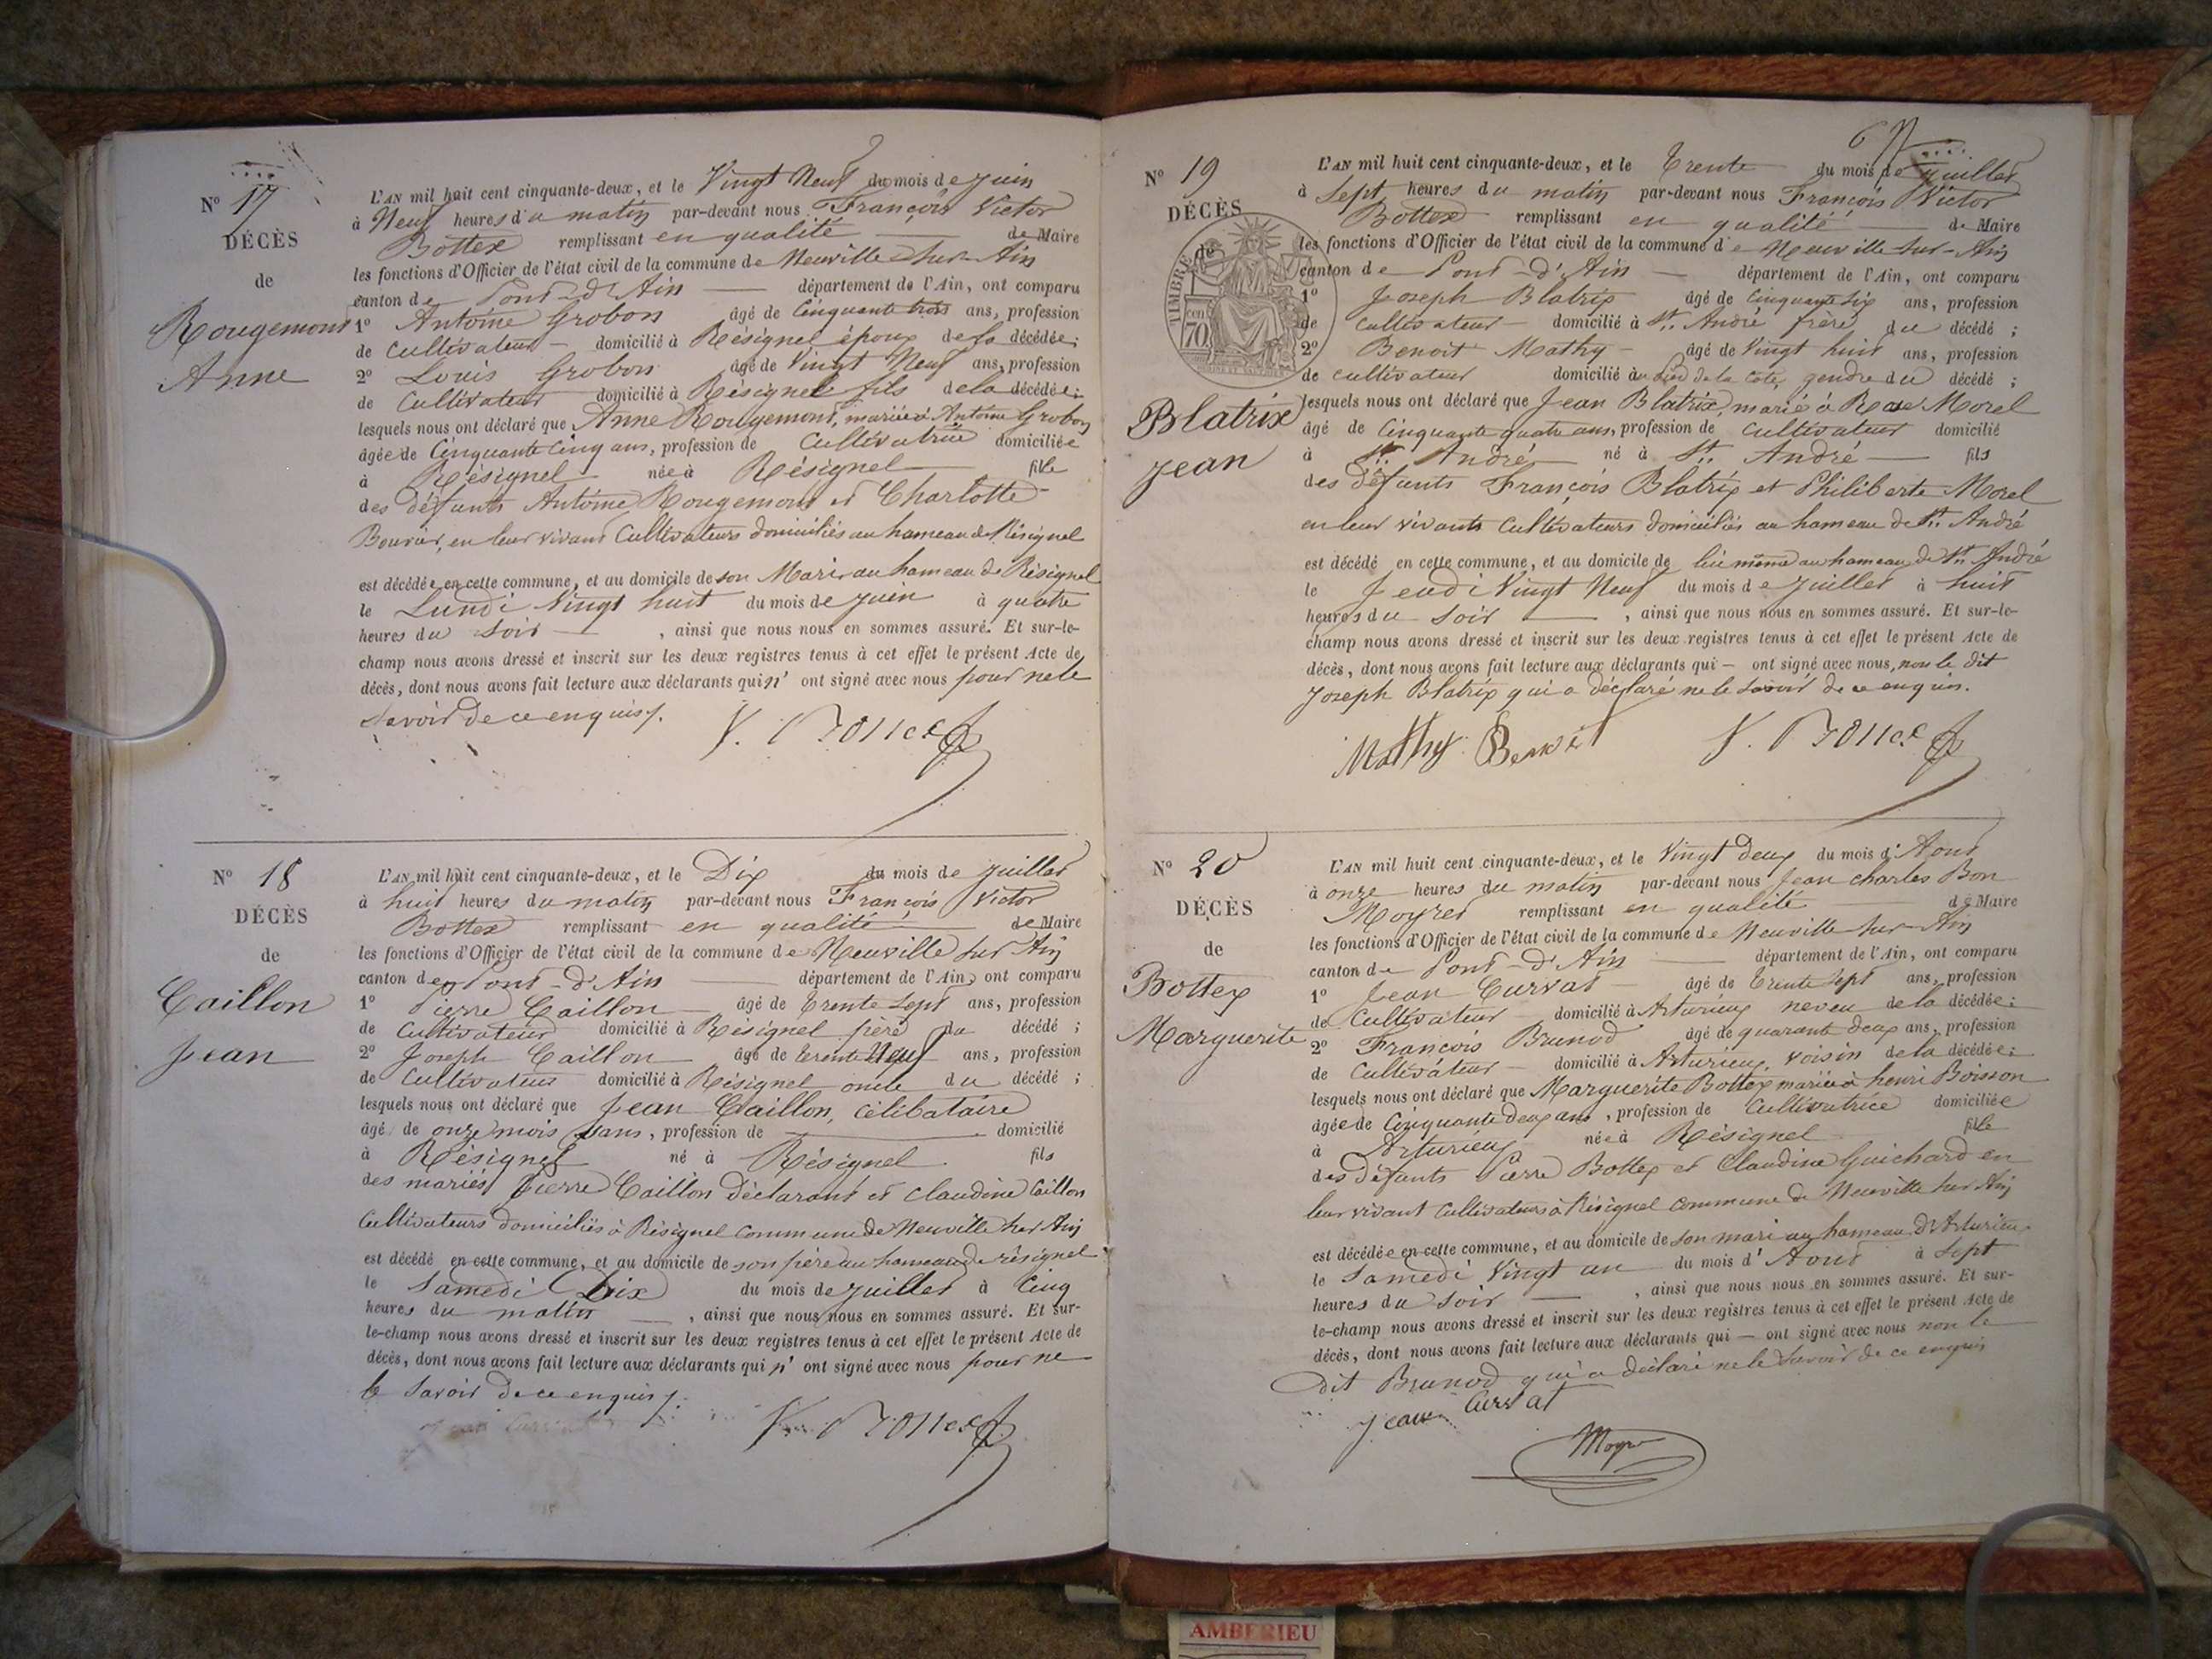 N° 17
DÉCÈS
de
Rougemont
Anne
L'AN mil huit cent cinquante-deux, et le Vingt Neuf du mois de Juin
à Neuf heures du matin par-devant nous François Victor
Bottex remplissant en qualité de Maire
les fonctions d'Officier de l'état civil de la commune de Neuville sur Ain
canton de Pont-d'Ain département de l'Ain, ont comparu
1° Antoine Grobon âgé de Cinquante trois ans, profession
de Cultivateur domicilié à Résignel époux de la décédée;
2° Louis Grobon âgé de Vingt Neuf ans, profession
de Cultivateur domicilié à Résignel fils de la décédée;
lesquels nous ont déclaré que Anne Rougemont, mariée à Antoine Grobon
âgée de Cinquante Cinq ans, profession de Cultivatrice domiciliée
à Résignel née à Résignel fille
des défunts Antoine Rougemont et Charlotte
Bouvier, en leur vivant Cultivateurs domiciliés au hameau de Résignel
est décédée en cette commune, et au domicile de son Mari au hameau de Résignel
le Lundi Vingt huit du mois de Juin à quatre
heures du soir , ainsi que nous nous en sommes assuré. Et sur-le-
champ nous avons dressé et inscrit sur les deux registres tenus à cet effet le présent Acte de
décès, dont nous avons fait lecture aux déclarants qui n' ont signé avec nous pour ne le
savoir de ce enquis.
V. Bottex
N° 18
DÉCÈS
de
Caillon
Jean
L'AN mil huit cent cinquante-deux, et le Dix du mois de Juillet
à huit heures du matin par-devant nous François Victor
Bottex remplissant en qualité de Maire
les fonctions d'Officier de l'état civil de la commune de Neuville sur Ain
canton de Pont-d'Ain département de l'Ain, ont comparu
1° Pierre Caillon âgé de Trente Sept ans, profession
de Cultivateur domicilié à Résignel père du décédé;
2° Joseph Caillon âgé de trente Neuf ans, profession
de Cultivateur domicilié à Résignel oncle du décédé;
lesquels nous ont déclaré que Jean Caillon, célibataire
âgé de onze mois ans, profession de domicilié
à Résignel né à Résignel fils
des mariés Pierre Caillon déclarant et Claudine Caillon
Cultivateurs domiciliés à Résignel Commune de Neuville sur Ain
est décédé en cette commune, et au domicile de son père au hameau de résignel
le Samedi Dix du mois de Juillet à Cinq
heures du matin , ainsi que nous nous en sommes assuré. Et sur-
le-champ nous avons dressé et inscrit sur les deux registres tenus à cet effet le présent Acte de
décès, dont nous avons fait lecture aux déclarants qui n' ont signé avec nous pour ne
le savoir de ce enquis.
V. Bottex
N° 19
DÉCÈS
de
TIMBRE
70 cen
Blatrix
Jean
L'AN mil huit cent cinquante-deux, et le Trente du mois de Juillet
à Sept heures du matin par-devant nous François Victor
Bottex remplissant en qualité de Maire
les fonctions d'Officier de l'état civil de la commune de Neuville sur-Ain
canton de Pont-d'Ain département de l'Ain, ont comparu
1° Joseph Blatrix âgé de Cinquante Six ans, profession
de Cultivateur domicilié à St. André frère du décédé;
2° Benoit Mathy âgé de Vingt huit ans, profession
de cultivateur domicilié au pied de la Côte, gendre du décédé;
lesquels nous ont déclaré que Jean Blatrix, marié à Rose Morel
âgé de Cinquante quatre ans, profession de Cultivateur domicilié
à St. André né à St. André fils
des défunts François Blatrix et Philiberte Morel
en leur vivants Cultivateurs domiciliés au hameau de St. André
est décédé en cette commune, et au domicile de lui même au hameau de St. André
le Jeudi Vingt Neuf du mois de Juillet à huit
heures du soir , ainsi que nous nous en sommes assuré. Et sur-le-
champ nous avons dressé et inscrit sur les deux registres tenus à cet effet le présent Acte de
décès, dont nous avons fait lecture aux déclarants qui ont signé avec nous, non le dit
Joseph Blatrix qui a déclaré ne le savoir de ce enquis.
Mathy Benoit V. Bottex
N° 20
DÉCÈS
de
Bottex
Marguerite
L'AN mil huit cent cinquante-deux, et le Vingt deux du mois d'Aout
à onze heures du matin par-devant nous Jean Charles Bon
Moyret remplissant en qualité de Maire
les fonctions d'Officier de l'état civil de la commune de Neuville sur-Ain
canton de Pont-d'Ain département de l'Ain, ont comparu
1° Jean Curvat âgé de Trente Sept ans, profession
de Cultivateur domicilié à Arturieux neveu de la décédée;
2° François Brunod âgé de quarante deux ans, profession
de Cultivateur domicilié à Arturieux, voisin de la décédée;
lesquels nous ont déclaré que Marguerite Bottex mariée à henri Boisson
âgée de Cinquante deux ans, profession de Cultivatrice domiciliée
à Arturieux née à Résignel fille
des défunts Pierre Bottex et Claudine Guichard en
leur vivant Cultivateurs à Résignel Commune de Neuville sur Ain
est décédée en cette commune, et au domicile de son mari au hameau d'Arturieux
le Samedi Vingt un du mois d'Aout à Sept
heures du soir , ainsi que nous nous en sommes assuré. Et sur-
le-champ nous avons dressé et inscrit sur les deux registres tenus à cet effet le présent Acte de
décès, dont nous avons fait lecture aux déclarants qui ont signé avec nous non le
dit Brunod qui a déclaré ne le savoir de ce enquis
Jean Curvat
Moyret
AMBERIEU